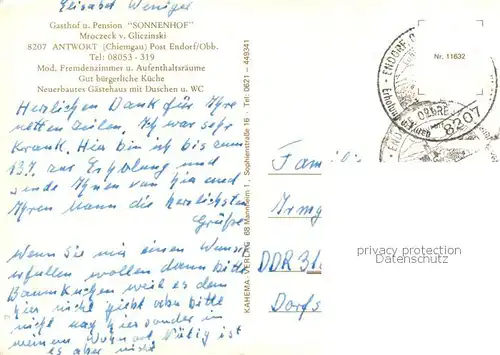 Elisabet Weniger
Gasthof u. Pension "SONNENHOF"
Mroczeck v. Gliczinski
8207 ANTWORT (Chiemgau) Post Endorf/Obb.
Tel: 08053 - 319
Mod. Fremdenzimmer u. Aufenthaltsräume
Gut bürgerliche Küche
Neuerbautes Gästehaus mit Duschen u. WC
Herzlichen Dank für Ihre
netten Zeilen. Ich war sehr
Krank. Hier bin ich bis zum
13.7. zur Erholung und
sende Ihnen von hier und
Ihren Mann die herzlichsten
Grüße
Wenn Sie mir einen Wunsch
erfüllen wollen dann bitte
Baumkuchen weil es dem
hier nicht giebt aber bitte
nicht nach hier sonder in
meinem Wohnort. Nötig ist
es aber nicht
KAHEMA-VERLAG 68 Mannheim 1, Sophienstraße 16 Tel: 0621 - 449341
Nr. 11632
ENDORF, O
OBBRE
8207
Fam
Irmg
DDR 31.
Dorfs
privacy protection
Datenschutz